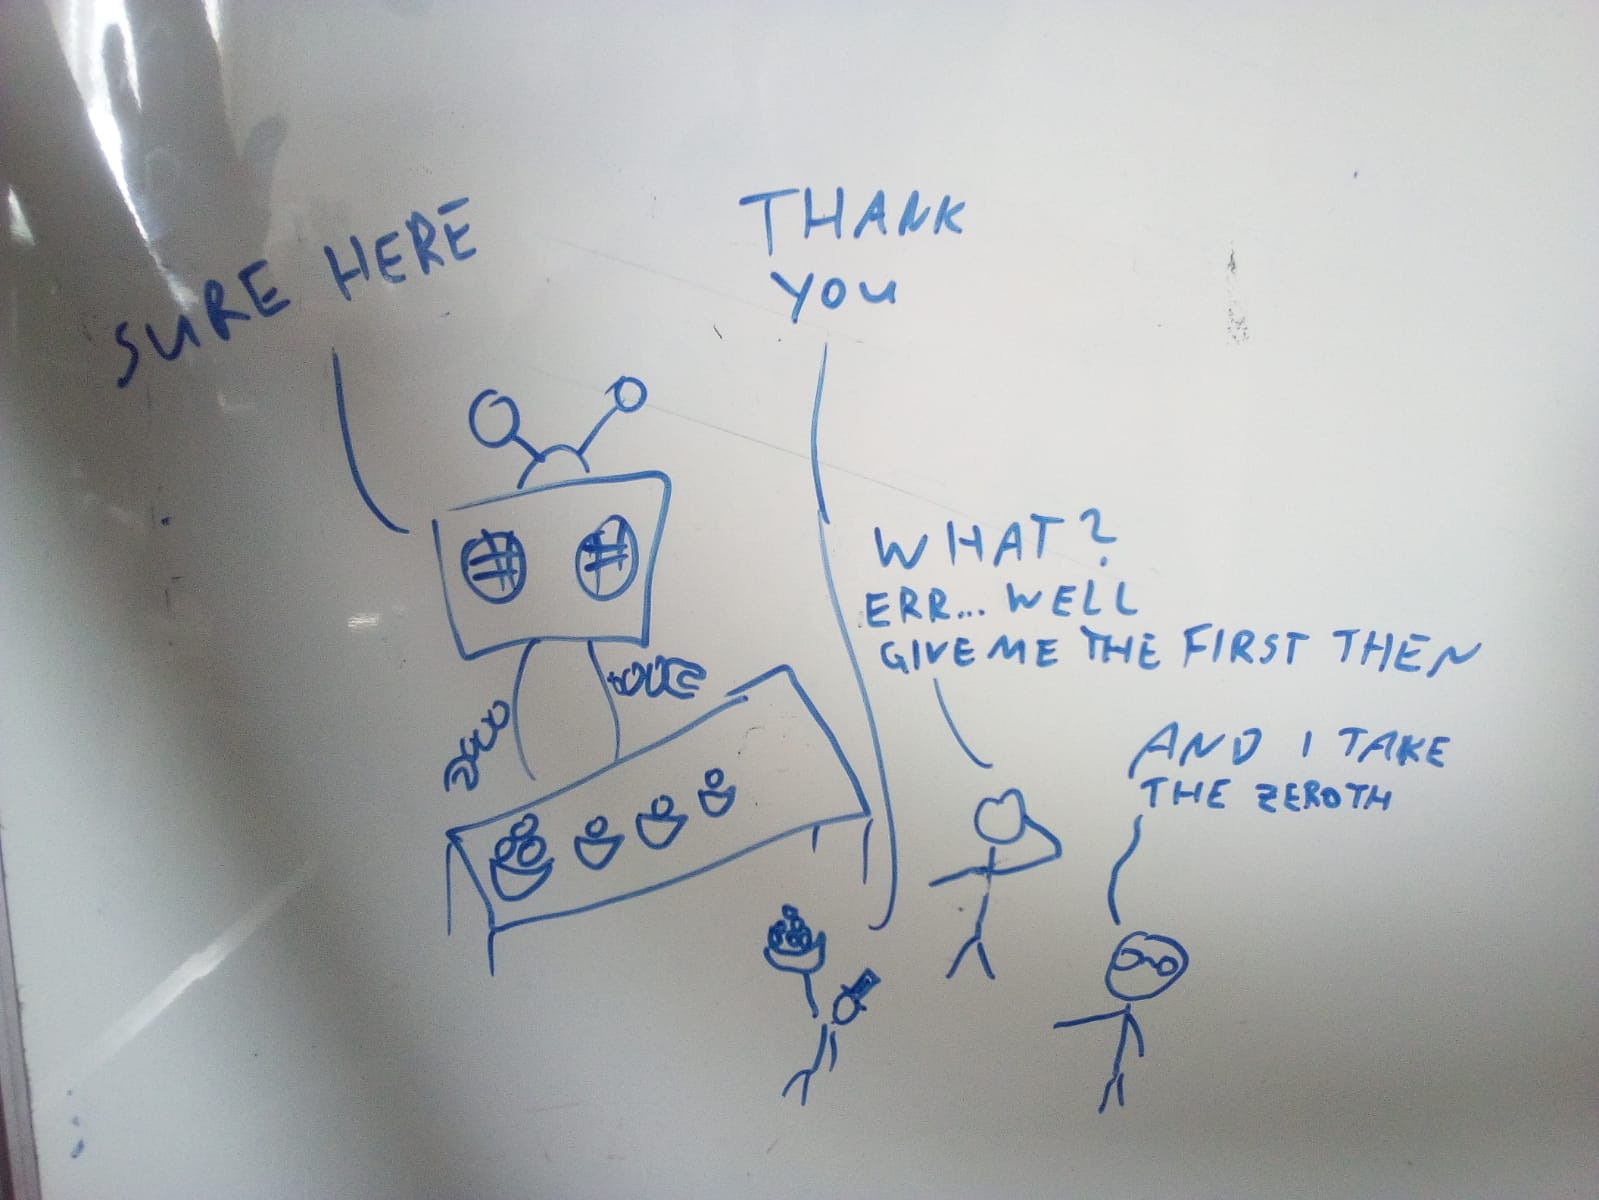 SURE HERE
THANK
YOU
WHAT?
ERR... WELL
GIVE ME THE FIRST THEN
AND I TAKE
THE ZEROTH